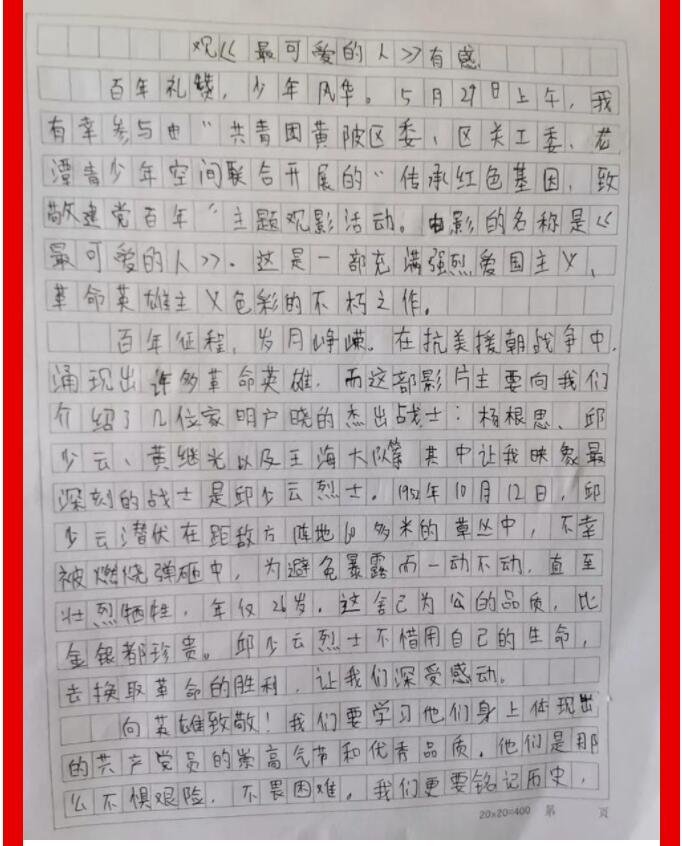 观《最可爱的人》有感
百年礼赞，少年风华。5月29日上午，我
有幸参与由“共青团黄陂区委、区关工委、龙
潭青少年空间联合开展的“传承红色基因，致
敬建党百年”主题观影活动。电影的名称是《
最可爱的人》。这是一部充满强烈爱国主义、
革命英雄主义色彩的不朽之作。
百年征程，岁月峥嵘。在抗美援朝战争中，
涌现出许多革命英雄，而这部影片主要向我们
介绍了几位家明户晓的杰出战士：杨根思、邱
少云、黄继光以及王海大队等。其中让我映象最
深刻的战士是邱少云烈士。1952年10月12日，邱
少云潜伏在距敌方阵地60多米的草丛中，不幸
被燃烧弹砸中，为避免暴露而一动不动，直至
壮烈牺牲，年仅26岁。这舍己为公的品质，比
金银都珍贵。邱少云烈士不惜用自己的生命，
去换取革命的胜利，让我们深受感动。
向英雄致敬！我们要学习他们身上体现出
的共产党员的崇高气节和优秀品质。他们是那
么不惧艰险，不畏困难。我们更要铭记历史，
20×20=400 第 页